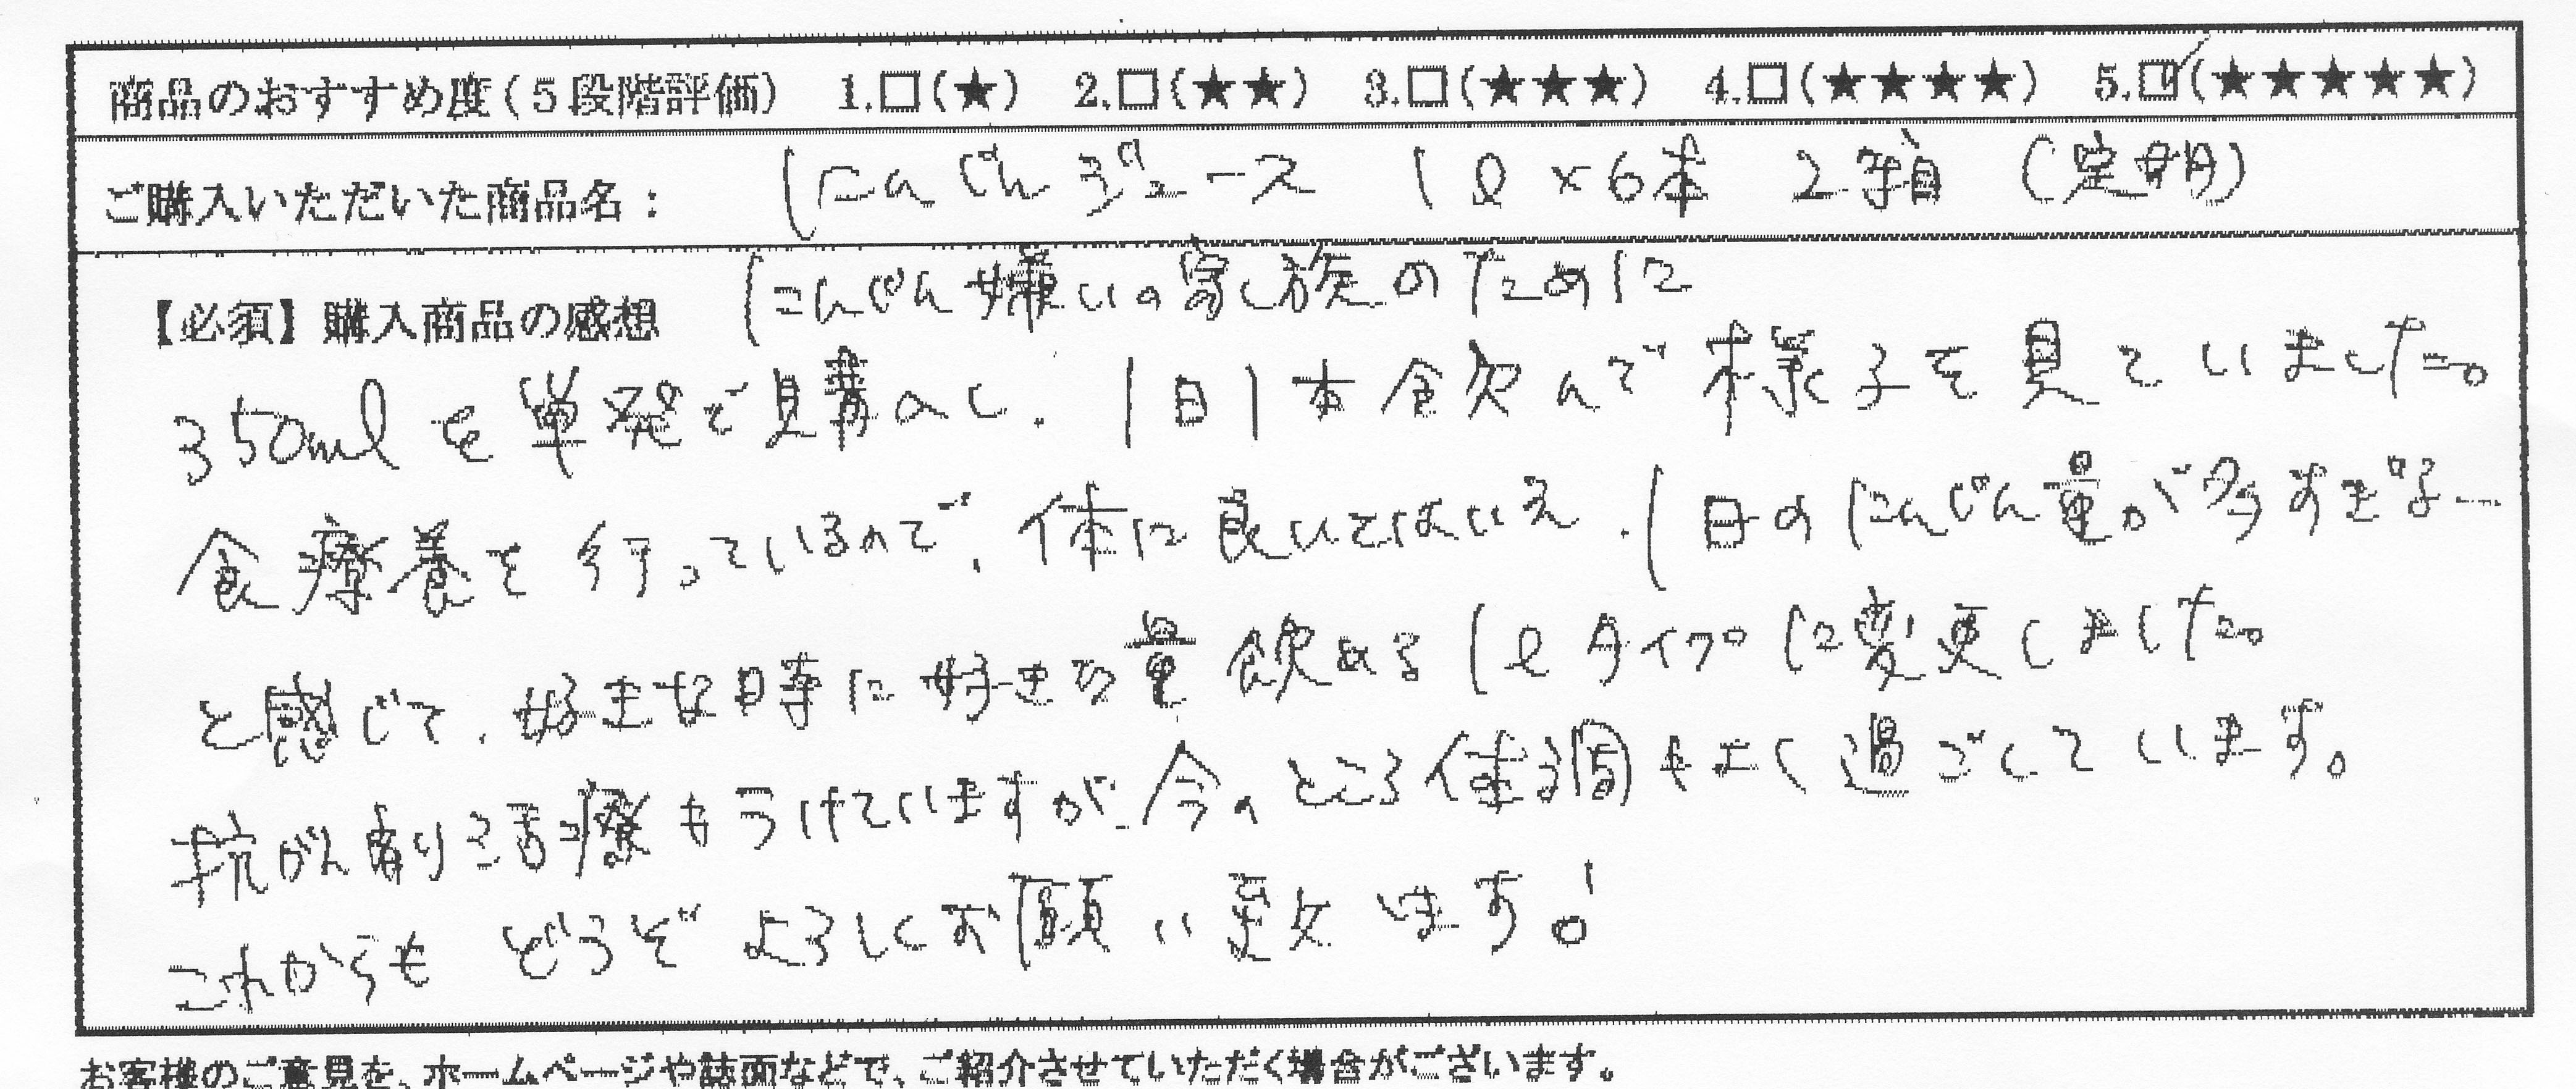 商品のおすすめ度(5段階評価) 1.□(★) 2.□(★★) 3.□(★★★) 4.□(★★★★) 5.☑(★★★★★)
ご購入いただいた商品名: にんじんジュース 1ℓ×6本 2箱 (定期)
【必須】購入商品の感想 にんじん嫌いの家族のために
350mlを単発で購入し、1日1本飲んで様子を見ていました。
食療養を行っているので、体に良いとはいえ、1日のにんじん量が多すぎるー
と感じて、好きな時に好きな量飲める1ℓタイプに変更しました。
抗がん剤治療もうけていますが、今のところ体調もよく過ごしています。
これからもどうぞよろしくお願い致します!
お客様のご意見を、ホームページや誌面などで、ご紹介させていただく場合がございます。